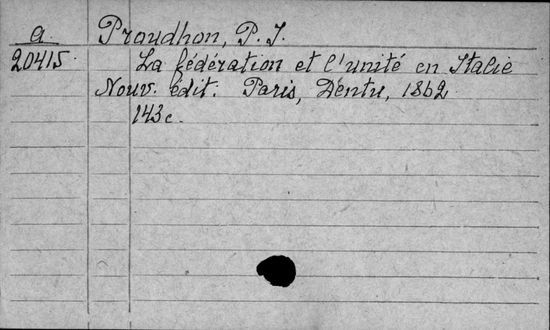 a
20415
Proudhon, P. J.
La fédération et l'unité en Italie
Nouv. édit. Paris, Dentu, 1862
143 c.